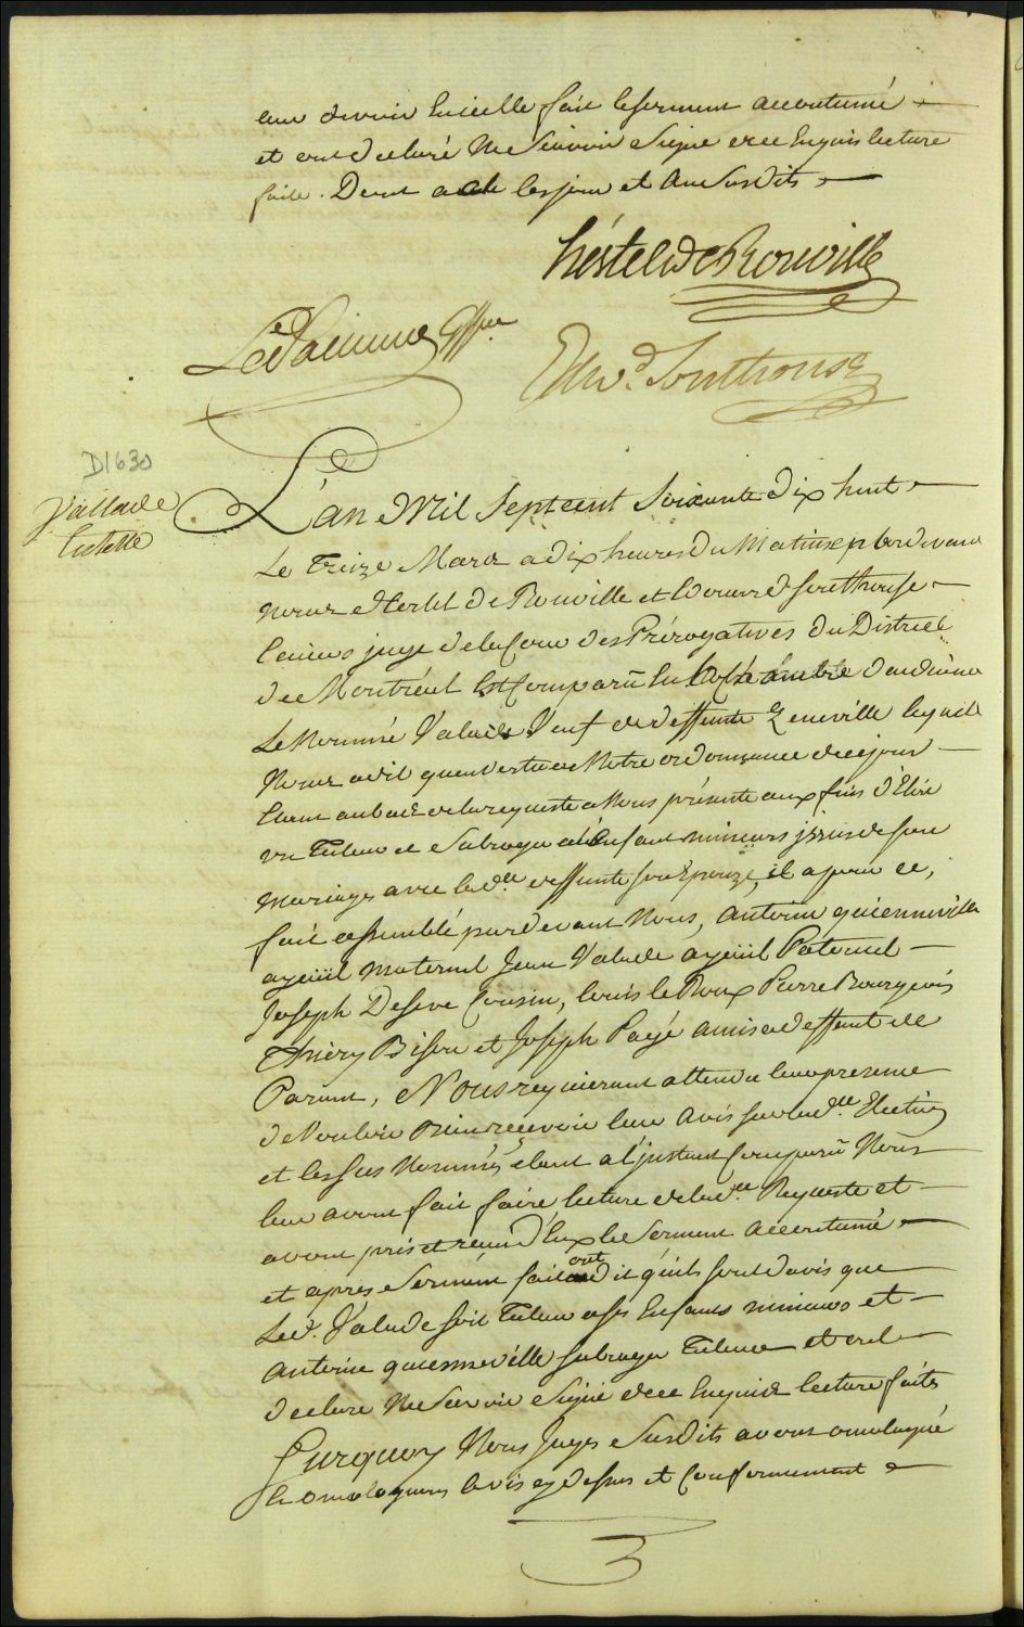 leur devoir en icelle fait le serment accoutumé
et ont declaré Ne Scavoir Signe de ce Enquis lecture
faite. Dont acte les jour et An Susdits
hértel de Rouville
LedSaimme Gffier
Edwd. Southouse
D1630
Vallade
tutelle
L'an Mil Sept cent Soixante Dix huit
Le Treize Mars a dix heures du Matin par devant
Nous Hertel De Rouville et Edouard Southouse
Ecuiers juges de la Cour des Prérogatives du District
de Montréal Est Comparû En Notre Chambre d'audience
Le Nommé Valade Veuf de deffunte Geneville lequel
Nous a dit qu'en Vertu de Notre ordonnance de ce jour
Etant au bas de la requeste a Nous présenté aux fins d'Elire
un Tuteur et Subrogé aux Enfant mineurs issus de son
mariage avec la de. deffunte son Epouze, il a pour ce,
fait assemblé par devant Nous, Antoine quenneville
ayeüil maternel Jean Valade ayeüil Paternel
Joseph Deseve Cousin, louis le Roux Pierre Bourgeois
Thiery Bison et Joseph Payé amis a deffaut de
Parans, Nous requierant attendu leur presence
de Vouloir Bien recevoir leur Avis sur la de. Election
et les Sus Nommés etant a l'jnstant Comparû Nous
leur avons fait faire lecture de la de. Requeste et
avons pris et reçu d'Eux le Serment accoutumé
et apres Serment fait ont dit qu'ils sont d'avis que
Led. Valade soit Tuteur a ses Enfants mineurs et
Antoine quenneville subroger Tuteur et ont
declare Ne Scavoir Signé de ce Enquis lecture faite
Surquoy Nous Juges Susdits avons omologué
et omologuons l'avis cy dessus et Conformement a
3